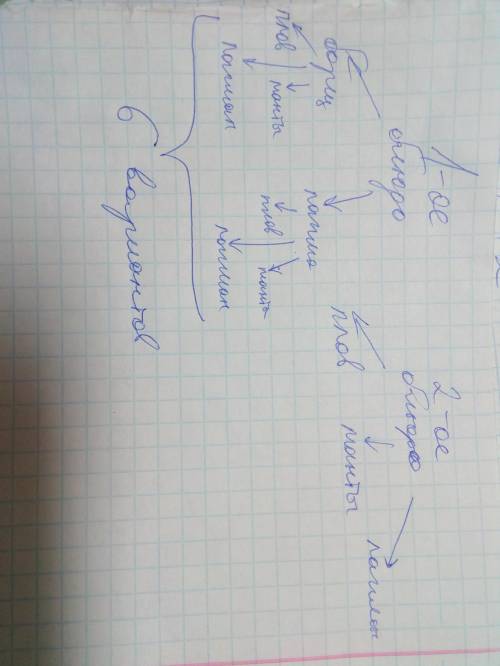 1-ое
блюдо
2-ое
блюдо
борщ
лапша
плов
манты
лагман
плов
манты
лагман
плов
манты
6 вариантов